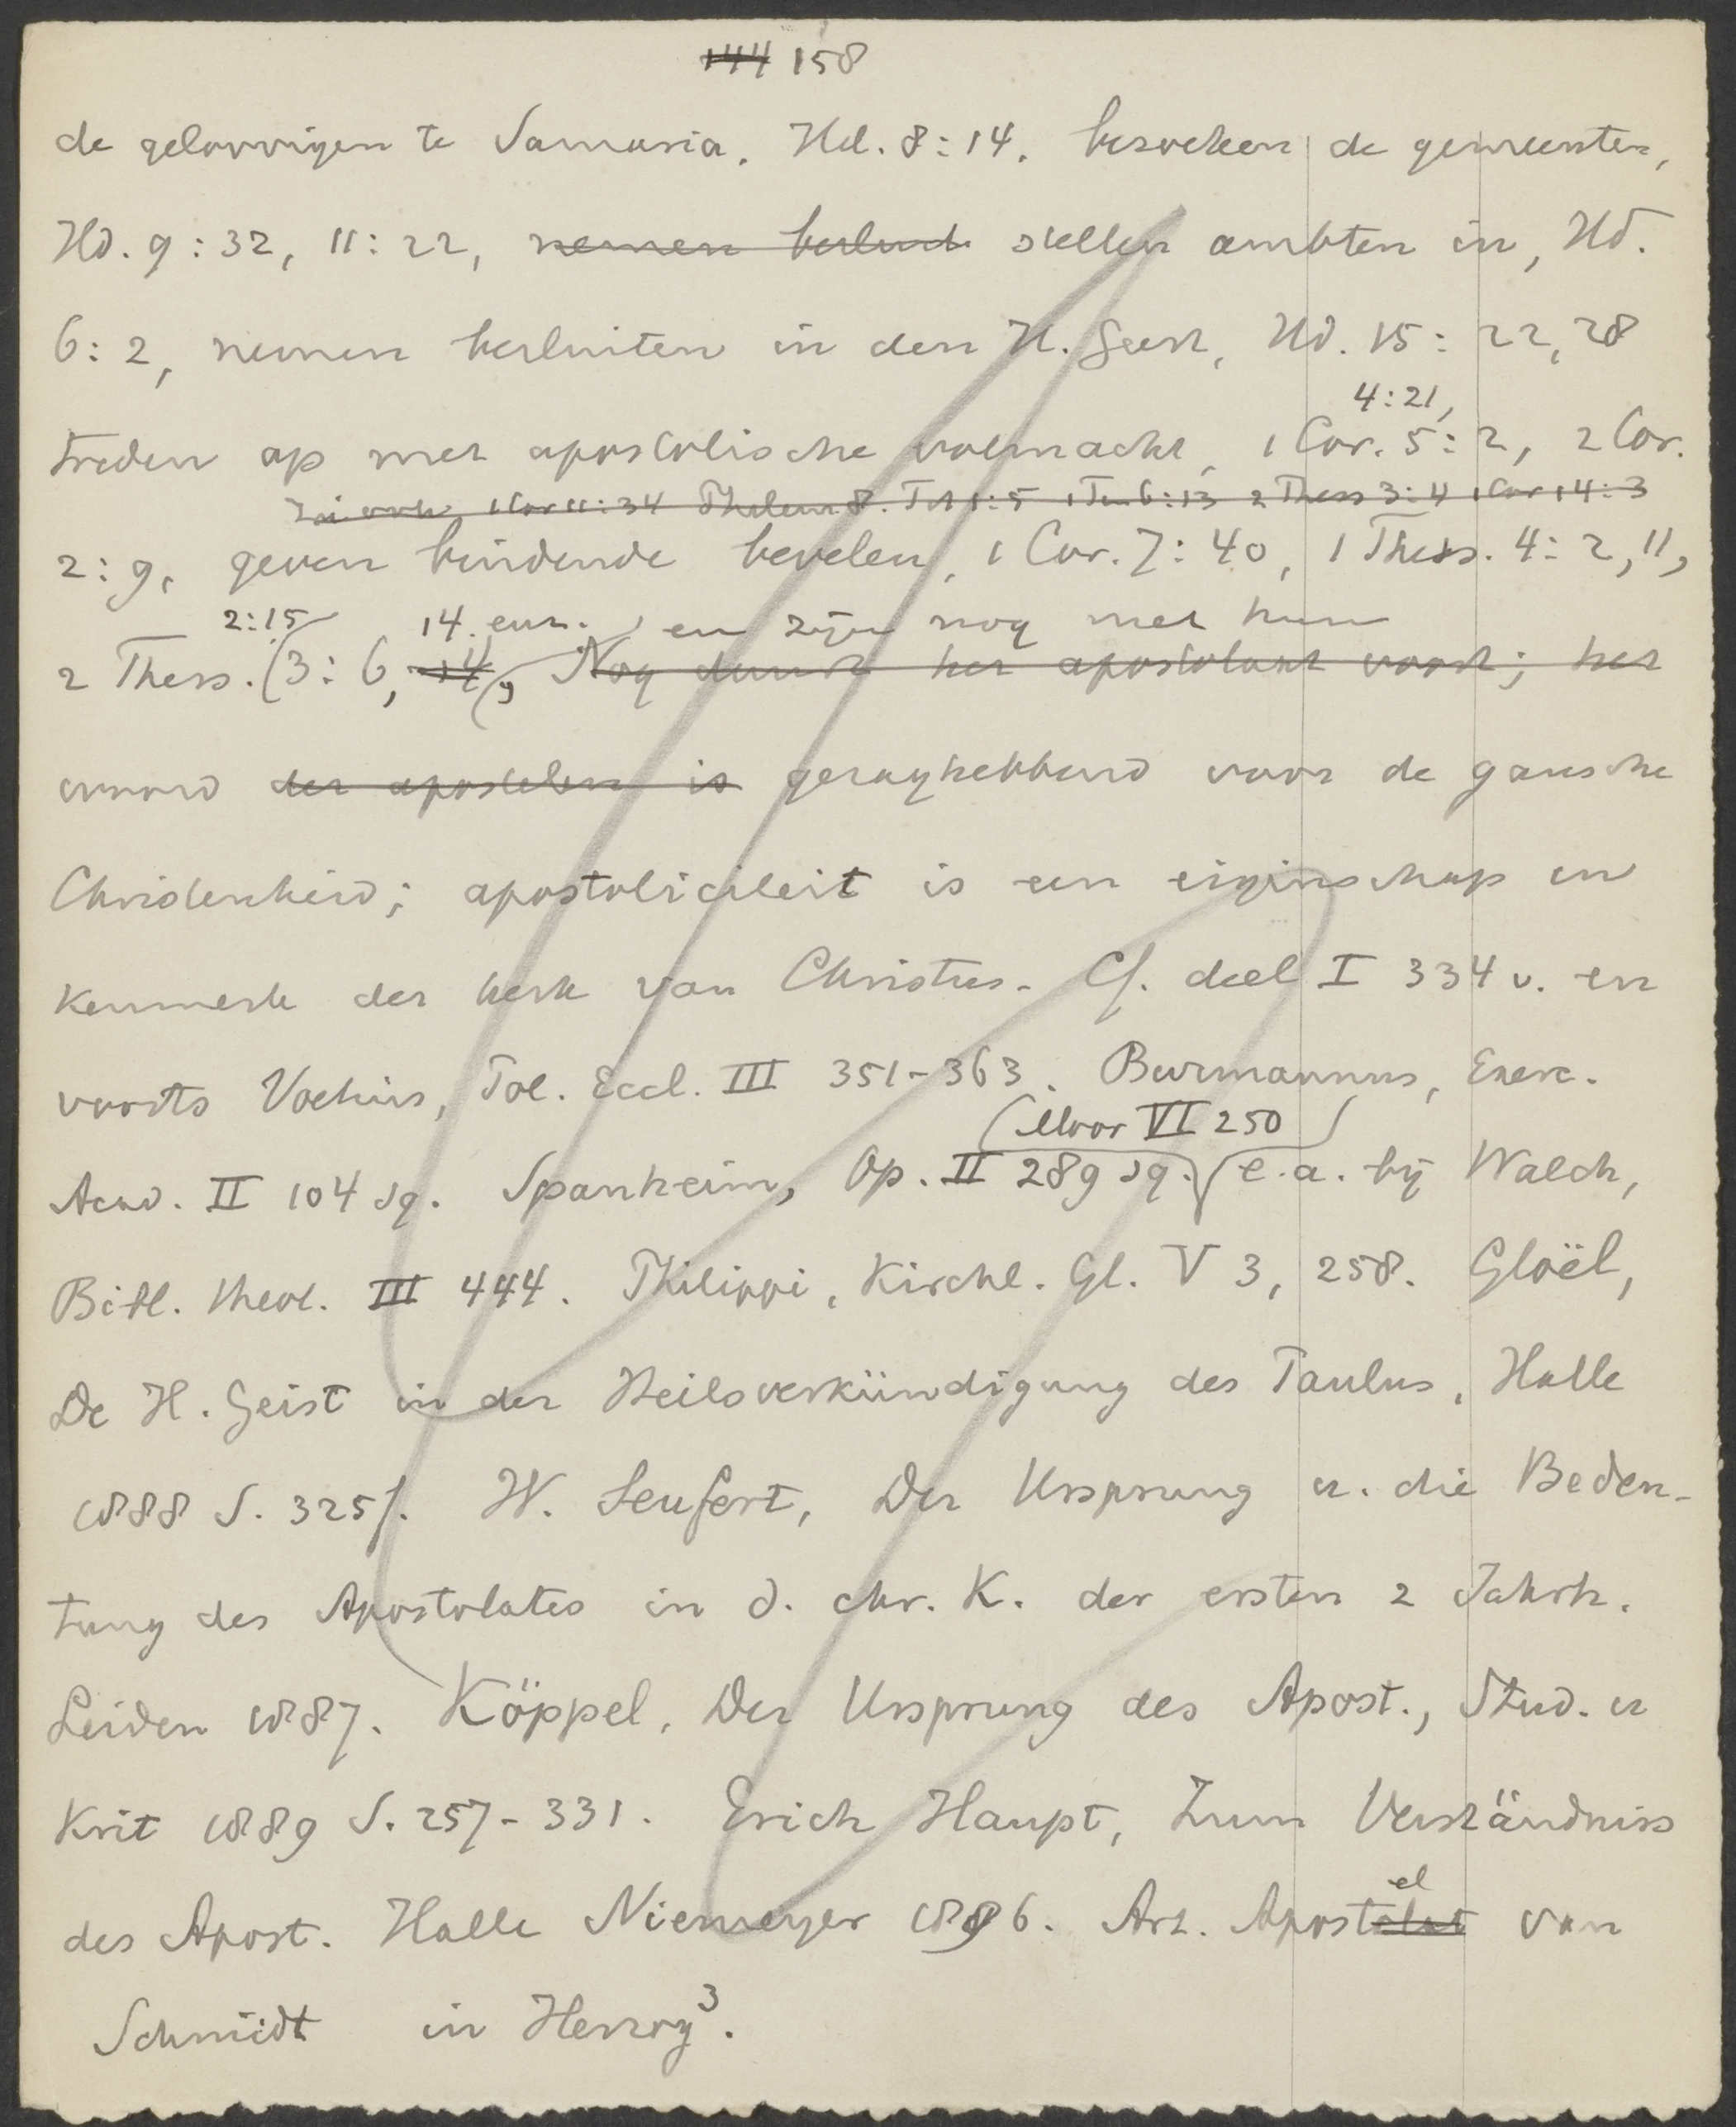 144 158
de geloovigen te Samaria, Hd. 8:14. bezoeken de gemeenten,
Hd. 9:32, 11:22, nemen besluit stellen ambten in, Hd.
6:2, nemen besluiten in den H. Geest, Hd. 15:22, 28
4:21,
treden op met apostolische volmacht, 1 Cor. 5:2, 2 Cor.
Zie ook 1 Cor 11:34 Philem 8. Tit 1:5 1 Tim 6:13 2 Thess 3:4 1 Cor 14:3
2:9, geven bindende bevelen, 1 Cor. 7:40, 1 Thess. 4:2, 11,
2:15 14. enz. en zijn nog met hun
2 Thess. (3:6, 14, Nog duurt het apostolaat voort; het
woord der apostelen is gezaghebbend voor de gansche
Christenheid; apostoliciteit is een eigenschap en
kenmerk der kerk van Christus. Cf. deel I 334 v. en
voorts Voetius, Pol. Eccl. III 351-363. Burmannus, Exerc.
Moor VI 250
Acad. II 104 sq. Spanheim, Op. II 289 sq. e.a. bij Walch,
Bibl. theol. III 444. Philippi, Kirchl. Gl. V 3, 258. Gloël,
De H. Geist in der Heilsverkündigung des Paulus, Halle
1888 S. 325f. W. Seufert, Der Ursprung u. die Bedeu-
tung des Apostolates in d. chr. K. der ersten 2 Jahrh.
Leiden 1887. Köppel, Der Ursprung des Apost., Stud. u
Krit 1889 S. 257-331. Erich Haupt, Zum Verständniss
el
des Apost. Halle Niemeyer 1896. Art. Apostolat van
Schmidt in Herzog³.